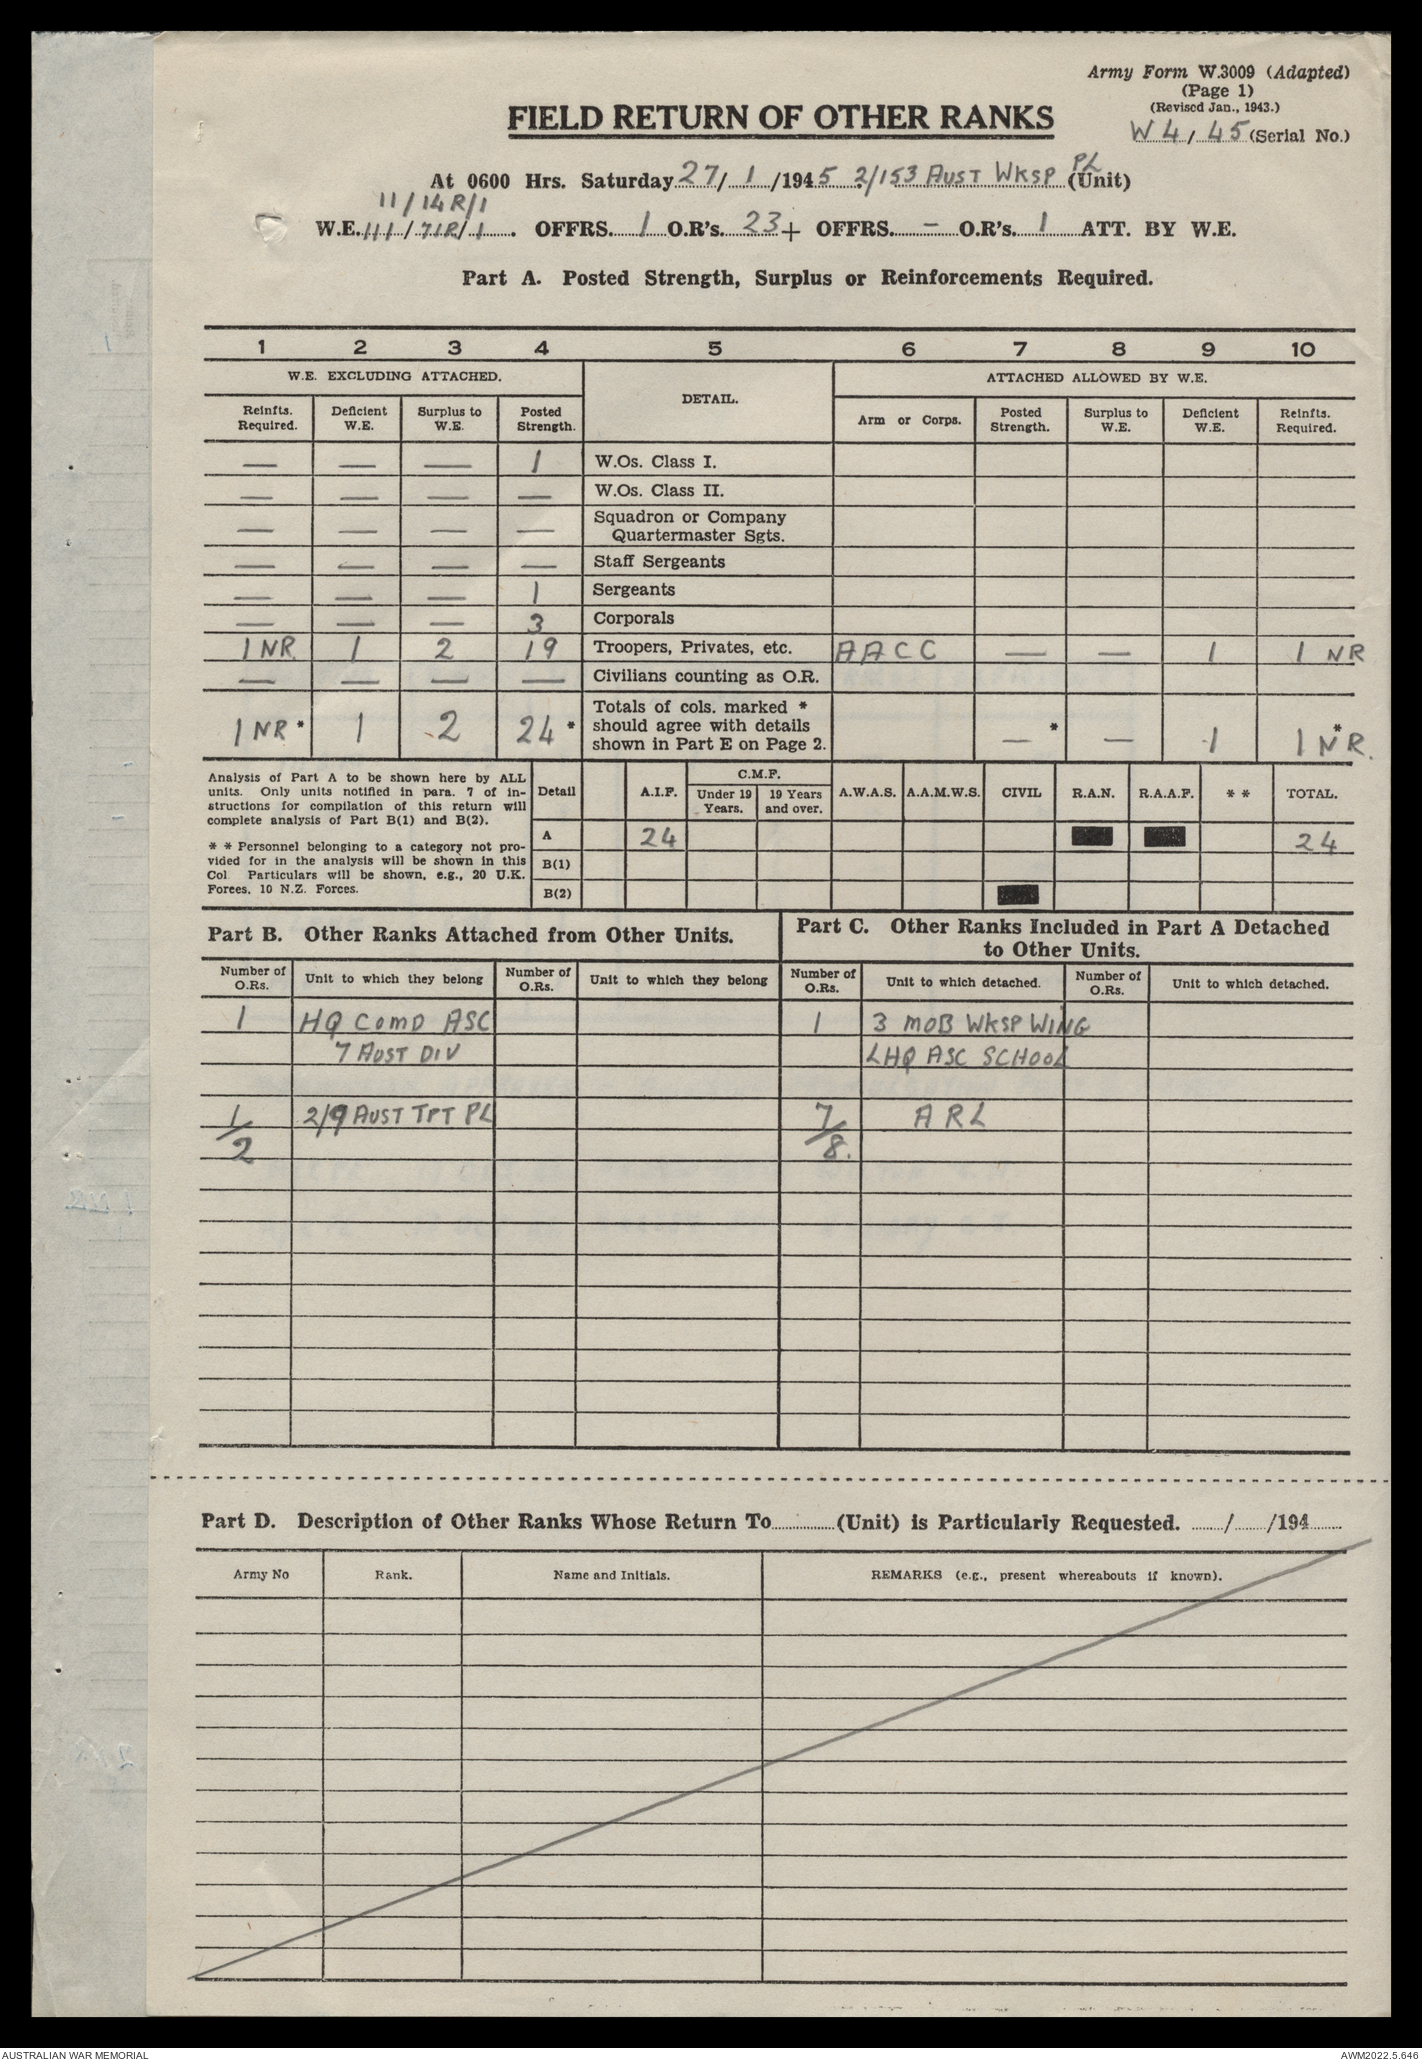 Army Form W.3009 (Adapted)
(Page 1)
(Revised Jan., 1943.)
W4/45 (Serial No.)
FIELD RETURN OF OTHER RANKS
At 0600 Hrs. Saturday 27/1/1945 2/153 AUST WKSP PL (Unit)
11/14R/1
W.E. 111/71R/1. OFFRS. 1 O.R's. 23 + OFFRS. - O.R's. 1 ATT. BY W.E.
Part A. Posted Strength, Surplus or Reinforcements Required.
1 2 3 4 5 6 7 8 9 10
W.E. EXCLUDING ATTACHED. DETAIL. ATTACHED ALLOWED BY W.E.
Reinfts. Required. Deficient W.E. Surplus to W.E. Posted Strength. Arm or Corps. Posted Strength. Surplus to W.E. Deficient W.E. Reinfts. Required.
— — — 1 W.Os. Class I.
— — — — W.Os. Class II.
— — — — Squadron or Company
Quartermaster Sgts.
— — — — Staff Sergeants
— — — 1 Sergeants
— — — 3 Corporals
1 NR 1 2 19 Troopers, Privates, etc. AACC — — 1 1 NR
— — — — Civilians counting as O.R.
Totals of cols. marked *
1 NR * 1 2 24 * should agree with details — * — 1 1 NR *
shown in Part E on Page 2.
Analysis of Part A to be shown here by ALL
units. Only units notified in para. 7 of in-
structions for compilation of this return will
complete analysis of Part B(1) and B(2).
* * Personnel belonging to a category not pro-
vided for in the analysis will be shown in this
Col Particulars will be shown, e.g., 20 U.K.
Forces, 10 N.Z. Forces.
Detail A.I.F. C.M.F. Under 19 Years. 19 Years and over. A.W.A.S. A.A.M.W.S. CIVIL R.A.N. R.A.A.F. * * TOTAL.
A 24 24
B(1)
B(2)
Part B. Other Ranks Attached from Other Units.
Part C. Other Ranks Included in Part A Detached
to Other Units.
Number of O.Rs. Unit to which they belong Number of O.Rs. Unit to which they belong Number of O.Rs. Unit to which detached. Number of O.Rs. Unit to which detached.
1 HQ COMD ASC 1 3 MOB WKSP WING
7 AUST DIV LHQ ASC SCHOOL
1 2/9 AUST TPT PL 7 ARL
2 8.
Part D. Description of Other Ranks Whose Return To (Unit) is Particularly Requested. / /194
Army No Rank. Name and Initials. REMARKS (e.g., present whereabouts if known).
AUSTRALIAN WAR MEMORIAL AWM2022.5.646